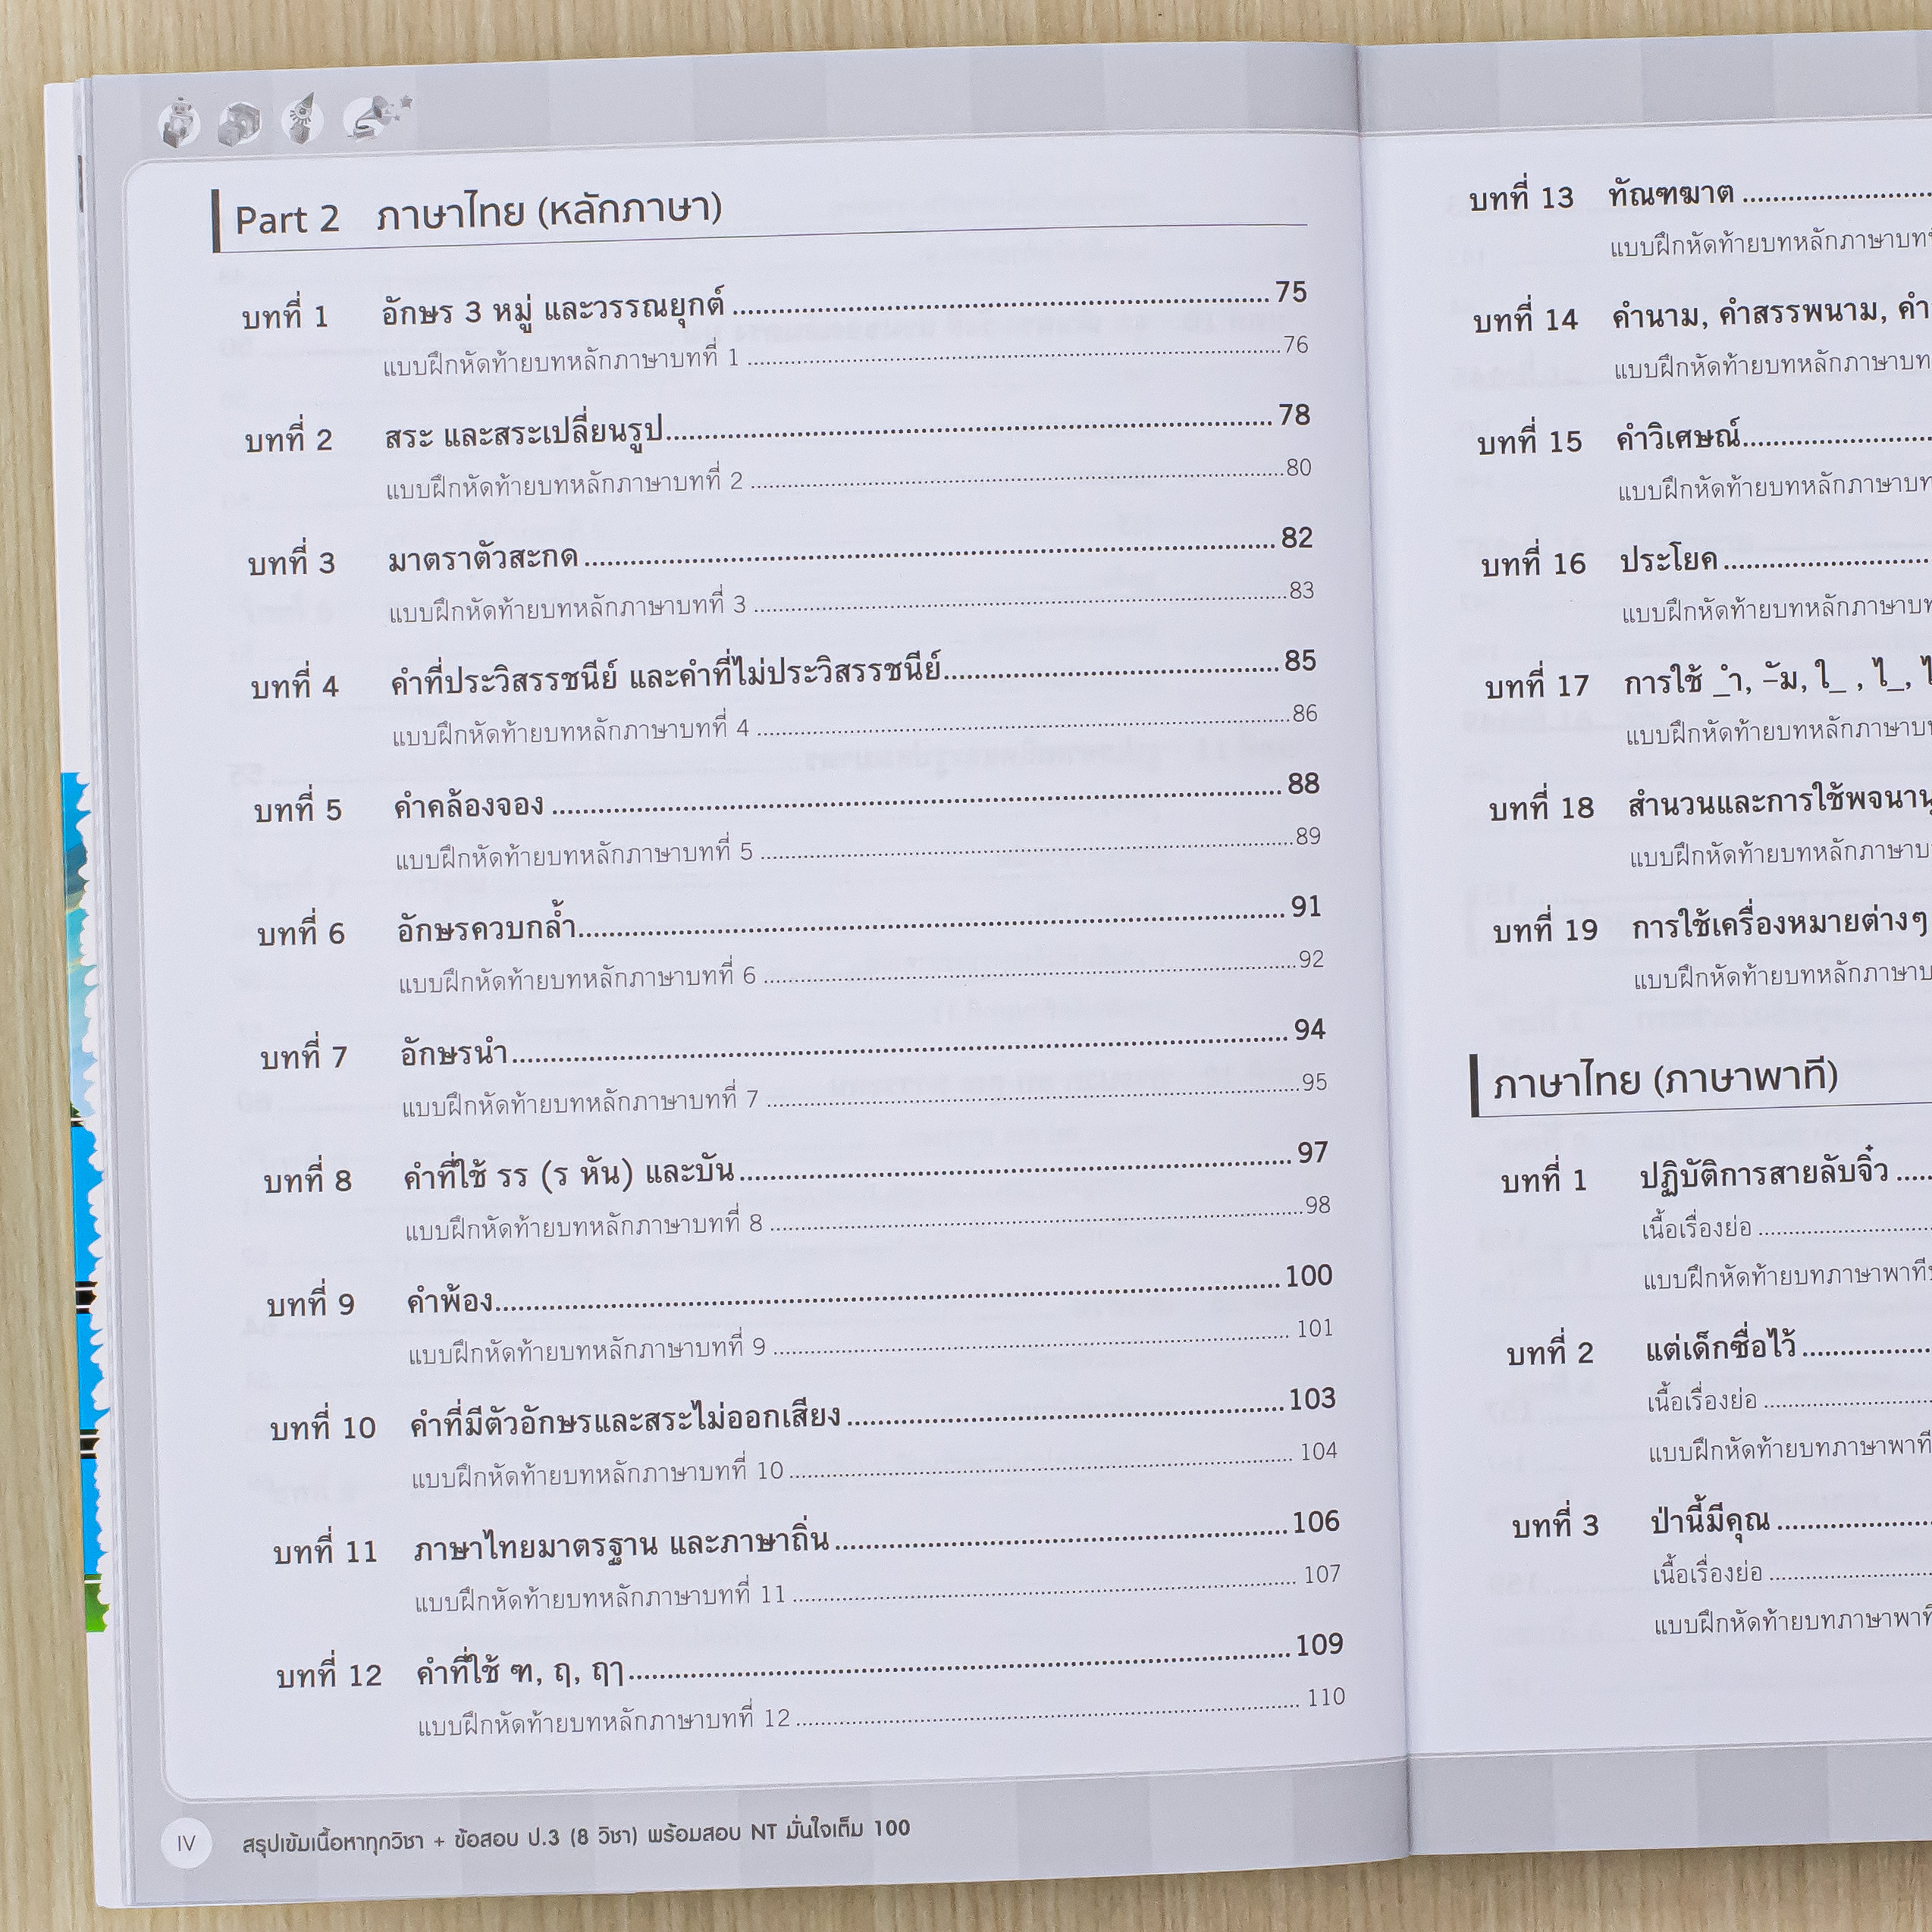 Part 2 ภาษาไทย (หลักภาษา)
บทที่ 1 อักษร 3 หมู่ และวรรณยุกต์ ........ 75
แบบฝึกหัดท้ายบทหลักภาษาบทที่ 1 ........ 76
บทที่ 2 สระ และสระเปลี่ยนรูป ........ 78
แบบฝึกหัดท้ายบทหลักภาษาบทที่ 2 ........ 80
บทที่ 3 มาตราตัวสะกด ........ 82
แบบฝึกหัดท้ายบทหลักภาษาบทที่ 3 ........ 83
บทที่ 4 คำที่ประวิสรรชนีย์ และคำที่ไม่ประวิสรรชนีย์ ........ 85
แบบฝึกหัดท้ายบทหลักภาษาบทที่ 4 ........ 86
บทที่ 5 คำคล้องจอง ........ 88
แบบฝึกหัดท้ายบทหลักภาษาบทที่ 5 ........ 89
บทที่ 6 อักษรควบกล้ำ ........ 91
แบบฝึกหัดท้ายบทหลักภาษาบทที่ 6 ........ 92
บทที่ 7 อักษรนำ ........ 94
แบบฝึกหัดท้ายบทหลักภาษาบทที่ 7 ........ 95
บทที่ 8 คำที่ใช้ รร (ร หัน) และบัน ........ 97
แบบฝึกหัดท้ายบทหลักภาษาบทที่ 8 ........ 98
บทที่ 9 คำพ้อง ........ 100
แบบฝึกหัดท้ายบทหลักภาษาบทที่ 9 ........ 101
บทที่ 10 คำที่มีตัวอักษรและสระไม่ออกเสียง ........ 103
แบบฝึกหัดท้ายบทหลักภาษาบทที่ 10 ........ 104
บทที่ 11 ภาษาไทยมาตรฐาน และภาษาถิ่น ........ 106
แบบฝึกหัดท้ายบทหลักภาษาบทที่ 11 ........ 107
บทที่ 12 คำที่ใช้ ฑ, ฤ, ฤๅ ........ 109
แบบฝึกหัดท้ายบทหลักภาษาบทที่ 12 ........ 110
IV สรุปเข้มเนื้อหาทุกวิชา + ข้อสอบ ป.3 (8 วิชา) พร้อมสอบ NT มั่นใจเต็ม 100
บทที่ 13 ทัณฑฆาต ........
แบบฝึกหัดท้ายบทหลักภาษาบท
บทที่ 14 คำนาม, คำสรรพนาม, คำ
แบบฝึกหัดท้ายบทหลักภาษาบท
บทที่ 15 คำวิเศษณ์ ........
แบบฝึกหัดท้ายบทหลักภาษาบท
บทที่ 16 ประโยค ........
แบบฝึกหัดท้ายบทหลักภาษาบท
บทที่ 17 การใช้ _ำ, –ัม, ใ_ , ไ_,
แบบฝึกหัดท้ายบทหลักภาษาบ
บทที่ 18 สำนวนและการใช้พจนานุ
แบบฝึกหัดท้ายบทหลักภาษาบ
บทที่ 19 การใช้เครื่องหมายต่างๆ
แบบฝึกหัดท้ายบทหลักภาษาบ
ภาษาไทย (ภาษาพาที)
บทที่ 1 ปฏิบัติการสายลับจิ๋ว ........
เนื้อเรื่องย่อ ........
แบบฝึกหัดท้ายบทภาษาพาที
บทที่ 2 แต่เด็กซื่อไว้ ........
เนื้อเรื่องย่อ ........
แบบฝึกหัดท้ายบทภาษาพาที
บทที่ 3 ป่านี้มีคุณ ........
เนื้อเรื่องย่อ ........
แบบฝึกหัดท้ายบทภาษาพาที